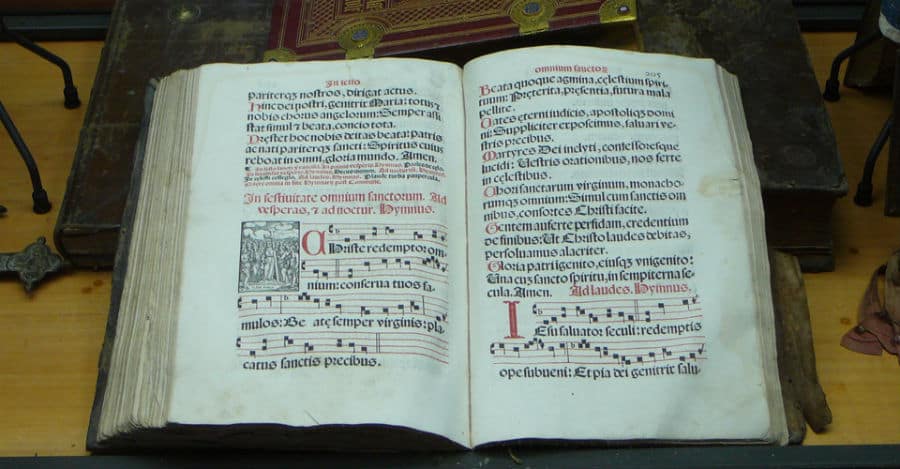 In festo
pariterqz nostros, dirigat actus.
Hinc dei nostri, genitrix Maria: totus &
nobis chorus angelorum: Semper assi
stat simul & beata, concio tota.
Prestet hoc nobis deitas beata: patris
ac nati pariterqz sancti: Spiritus cuius
reboat in omni, gloria mundo. Amen.
In festiuitate omnium sanctorum. Ad
vesperas, & ad noctur. Hymnus.
Christe redemptor om-
nium: conserua tuos fa-
mulos: Be atę semper virginis: pla
catus sanctis precibus.
omnium sanctoz 205
Beata quoque agmina, cęlestium spiri
tuum: Pręterita, pręsentia, futura mala
pellite.
Uates ęterni iudicis, apostoliqz domi
ni: Suppliciter exposcimus, saluari ve-
stris precibus.
Martyres Dei indyti, confessoresque
lucidi: Uestris orationibus, nos ferte
in cęlestibus.
Chori sanctarum virginum, monacho-
rumqz omnium: Simul cum sanctis om
nibus, consortes Christi facite.
Gentem auferte perfidam, credentium
de finibus: Ut Christo laudes debitas,
persoluamus alacriter.
Gloria patri igenito, eiusqz vnigenito:
Una cuz sancto spiritu, in sempiterna sę-
cula. Amen. Ad laudes. Hymnus.
IEsu saluator seculi: redemptis
ope subueni: Et pia dei genitrix salu-